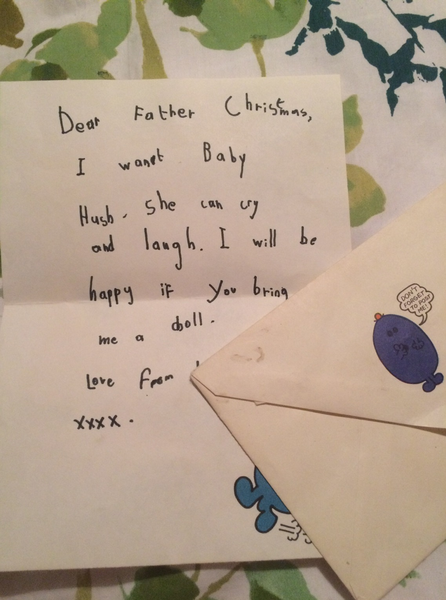 Dear Father Christmas,
I wanet Baby
Hush. She can cry
and laugh. I will be
happy if you bring
me a doll.
Love from
xxxx.
DON'T
FORGET
TO POST
ME!